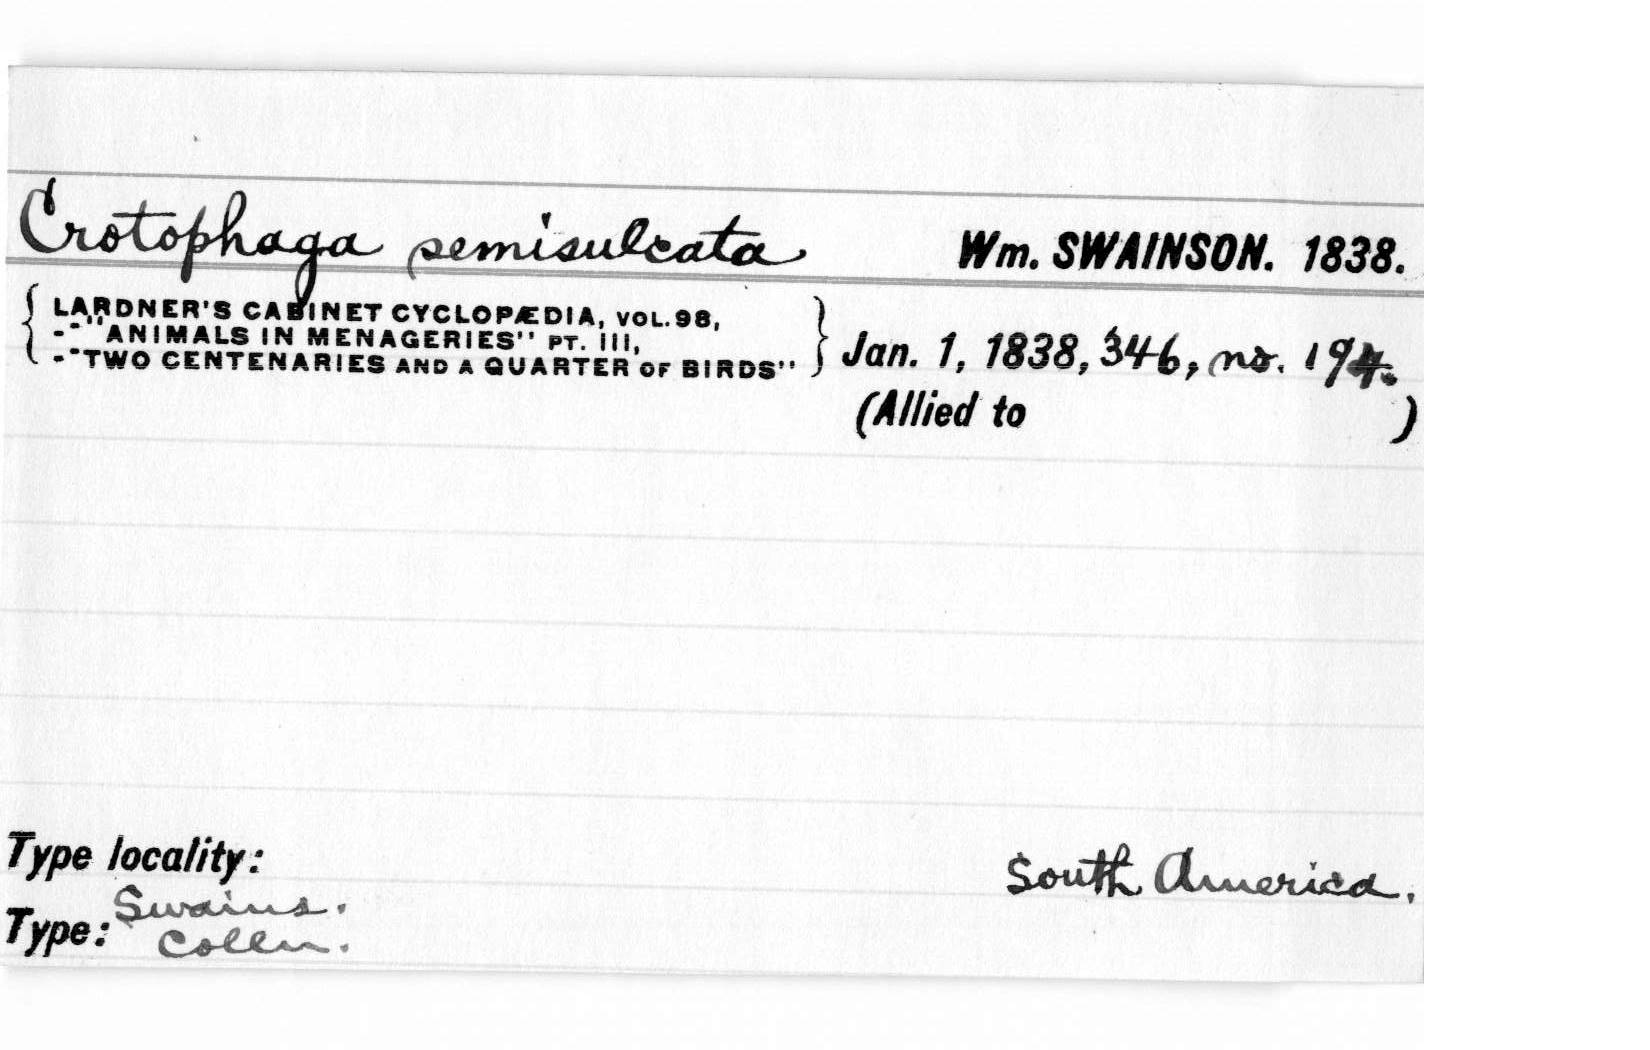 Crotophaga semisulcata Wm. SWAINSON. 1838.
{ LARDNER'S CABINET CYCLOPÆDIA, VOL. 98,
--"ANIMALS IN MENAGERIES" PT. III,
--"TWO CENTENARIES AND A QUARTER OF BIRDS" } Jan. 1, 1838, 346, no. 194.
(Allied to )
Type locality: South America.
Swains.
Type: Colln.